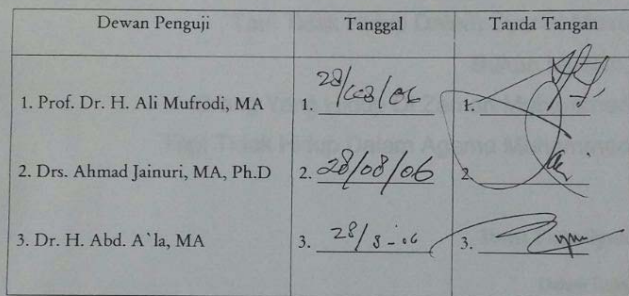 Dewan Penguji Tanggal Tanda Tangan
1. Prof. Dr. H. Ali Mufrodi, MA 1. 28/08/06 1.
2. Drs. Ahmad Jainuri, MA, Ph.D 2. 28/08/06 2.
3. Dr. H. Abd. A`la, MA 3. 28/8-06 3.